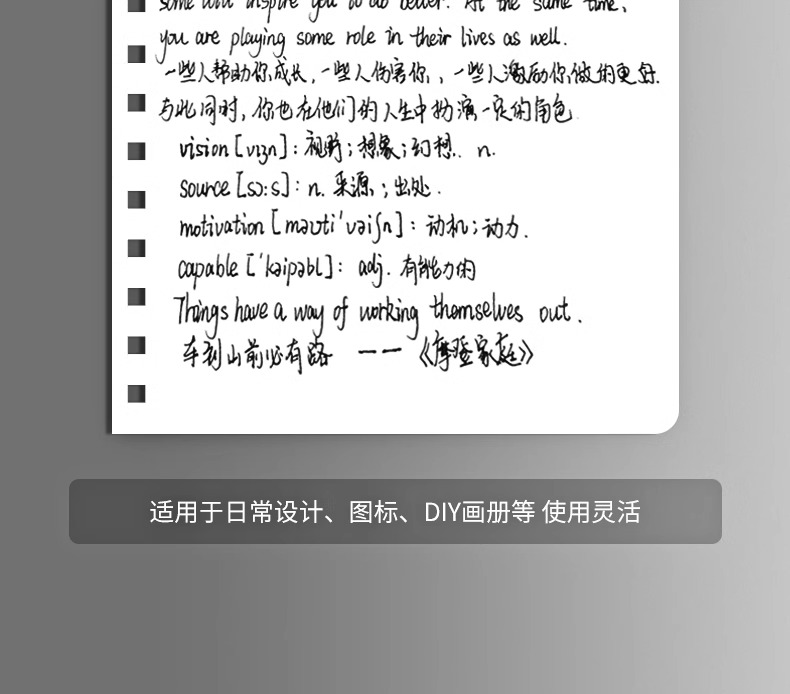 some will inspire you to do better. At the same time,
you are playing some role in their lives as well.
一些人帮助你成长,一些人伤害你,、一些人激励你做的更好.
与此同时,你也在他们的人生中扮演一定的角色
vision [vɪʒn]: 视野;想象;幻想. n.
source [sɔ:s]: n. 来源;出处.
motivation [məʊti'vəiʃn]: 动机;动力.
capable ['kəipəbl]: adj. 有能力的
Things have a way of working themselves out.
车到山前必有路 一一《摩登家庭》
适用于日常设计、图标、DIY画册等 使用灵活